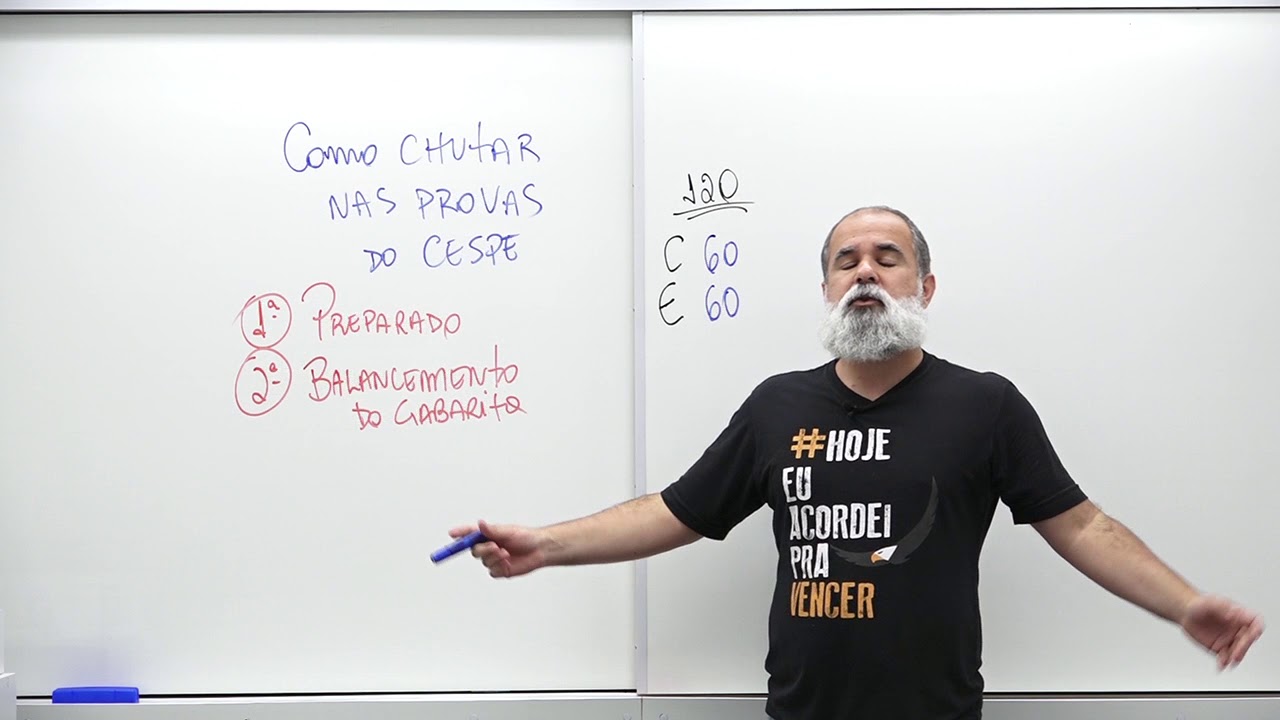 Como CHUTAR
NAS PROVAS
DO CESPE
1ª PREPARADO
2ª BALANCEMENTO
DO GABARITO
120
C 60
E 60
#HOJE
EU
ACORDEI
PRA
VENCER